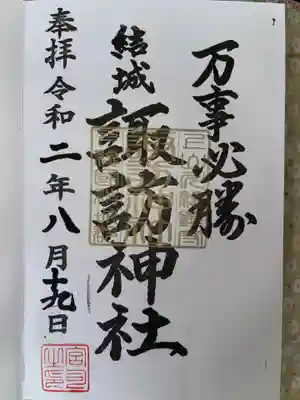 万事必勝
結城
諏訪神社
奉拝 令和二年八月十九日